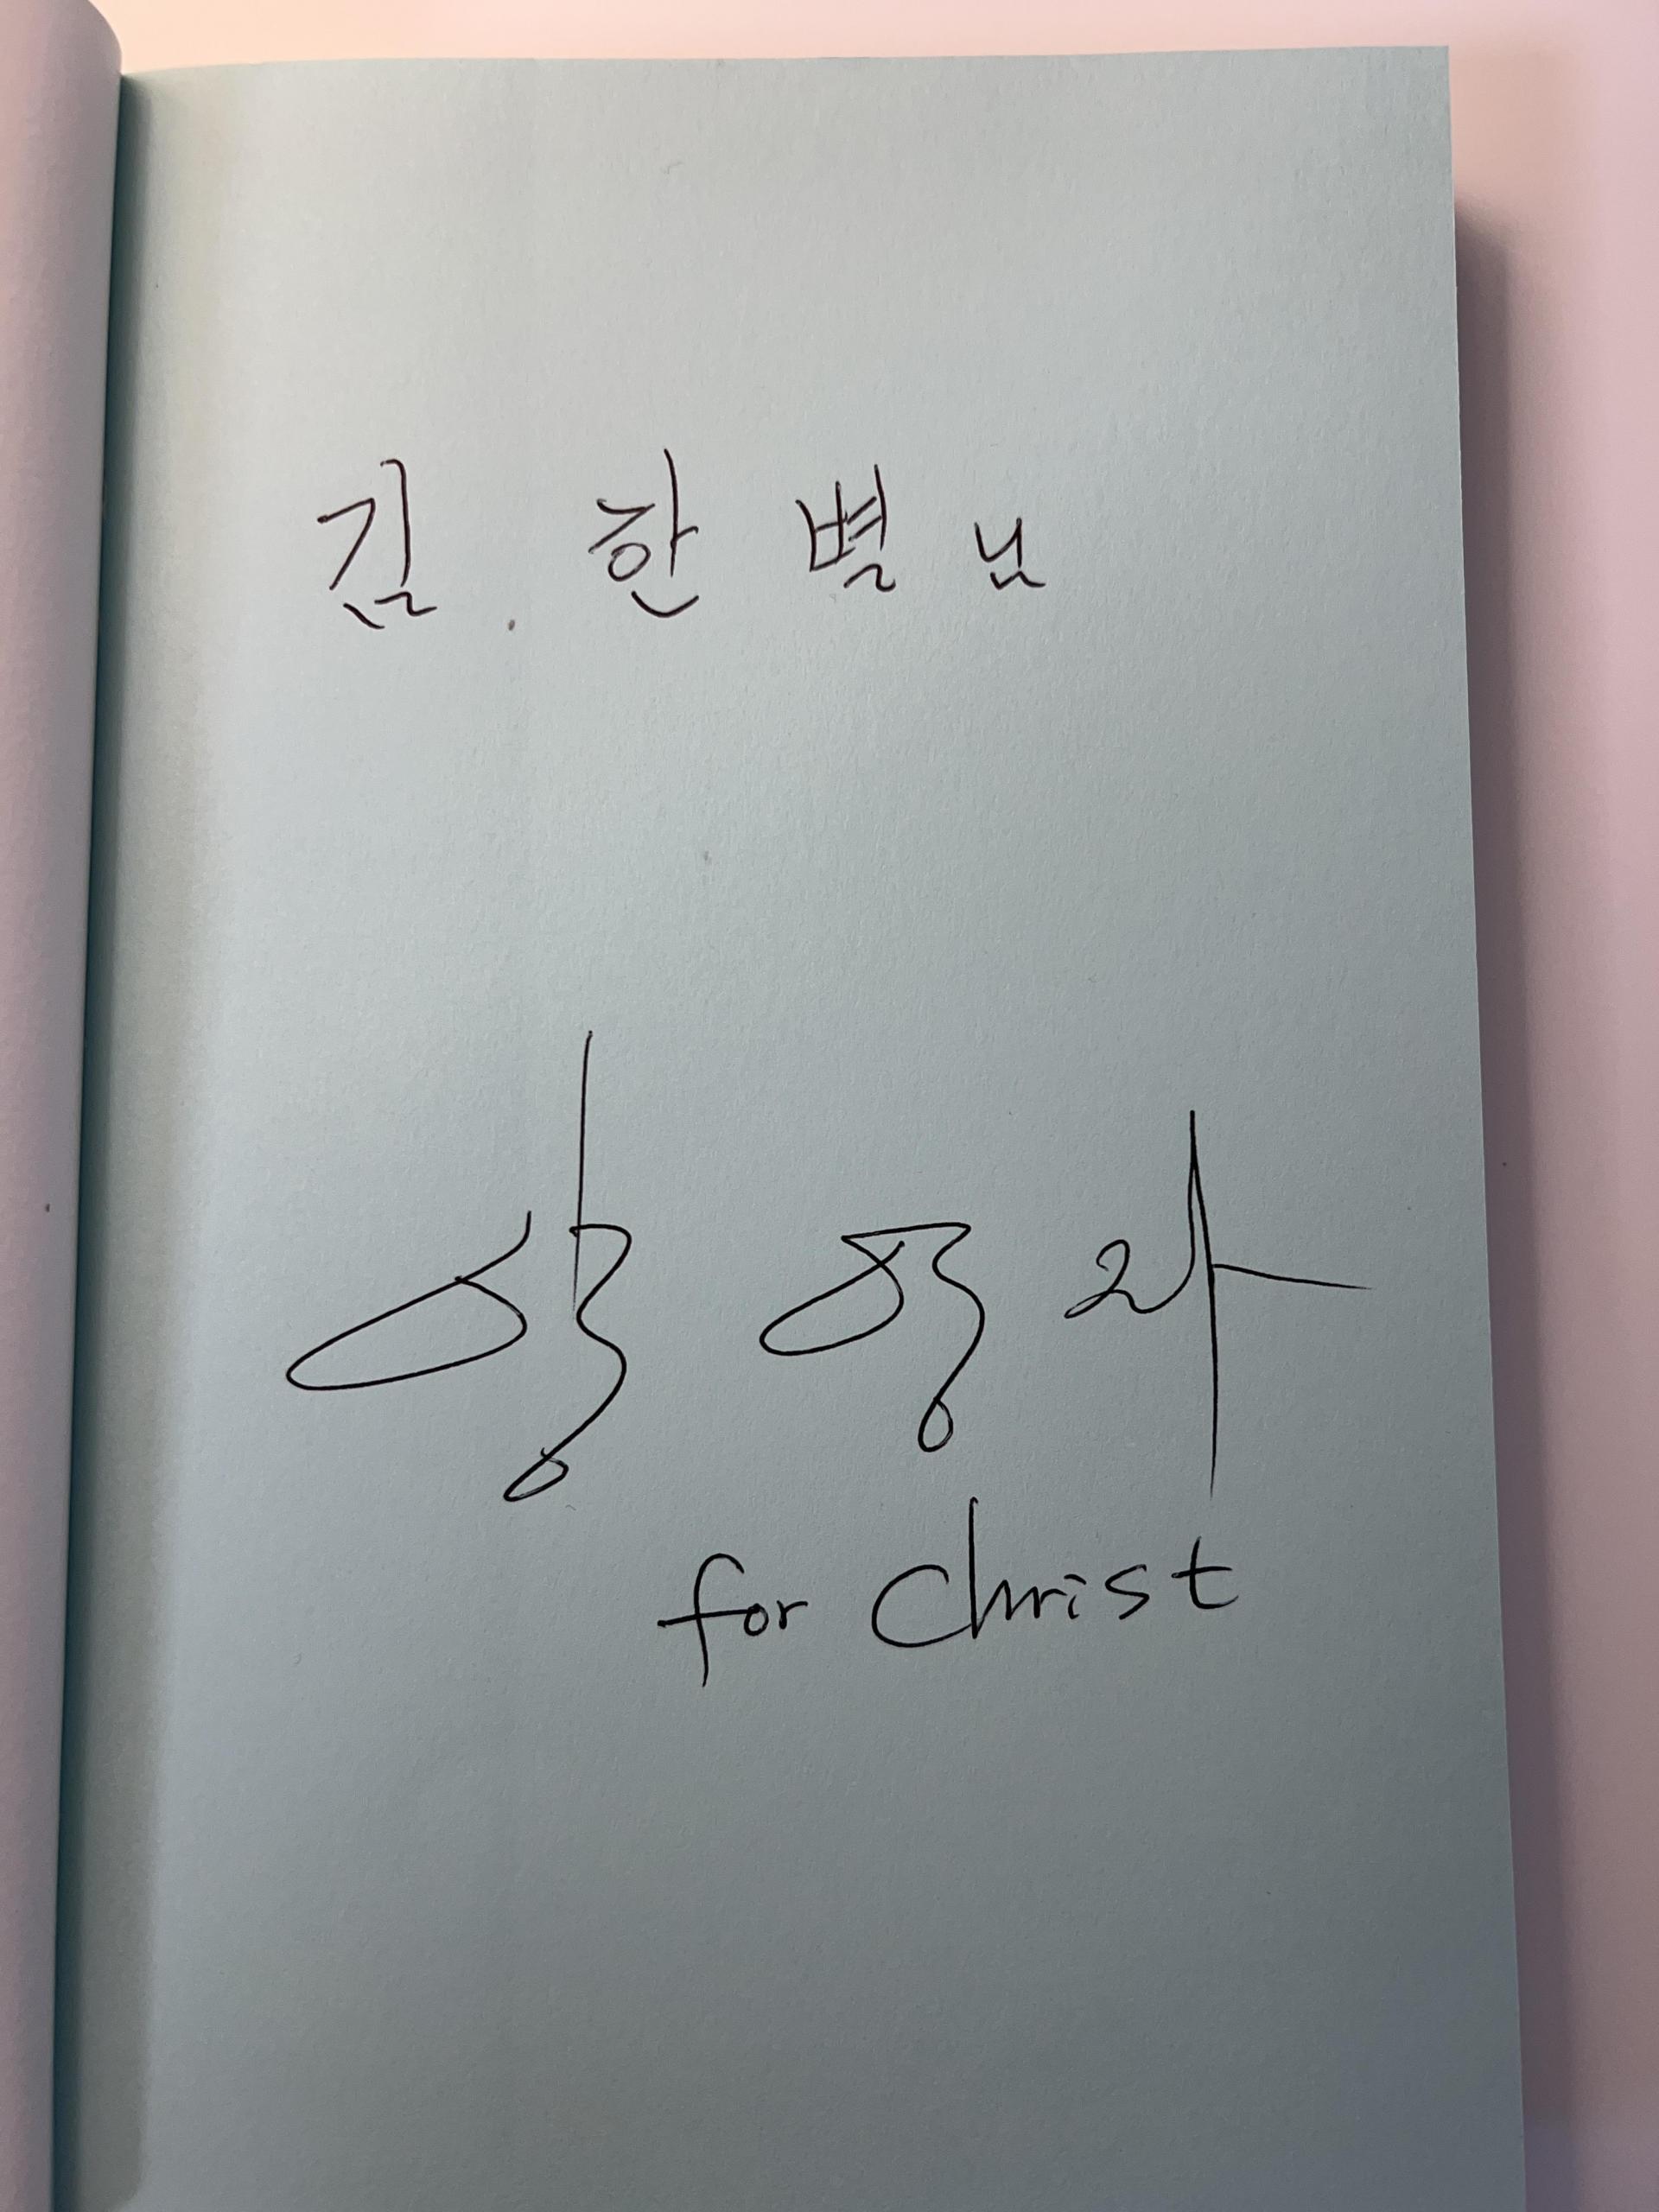 김 한 별 님
for Christ